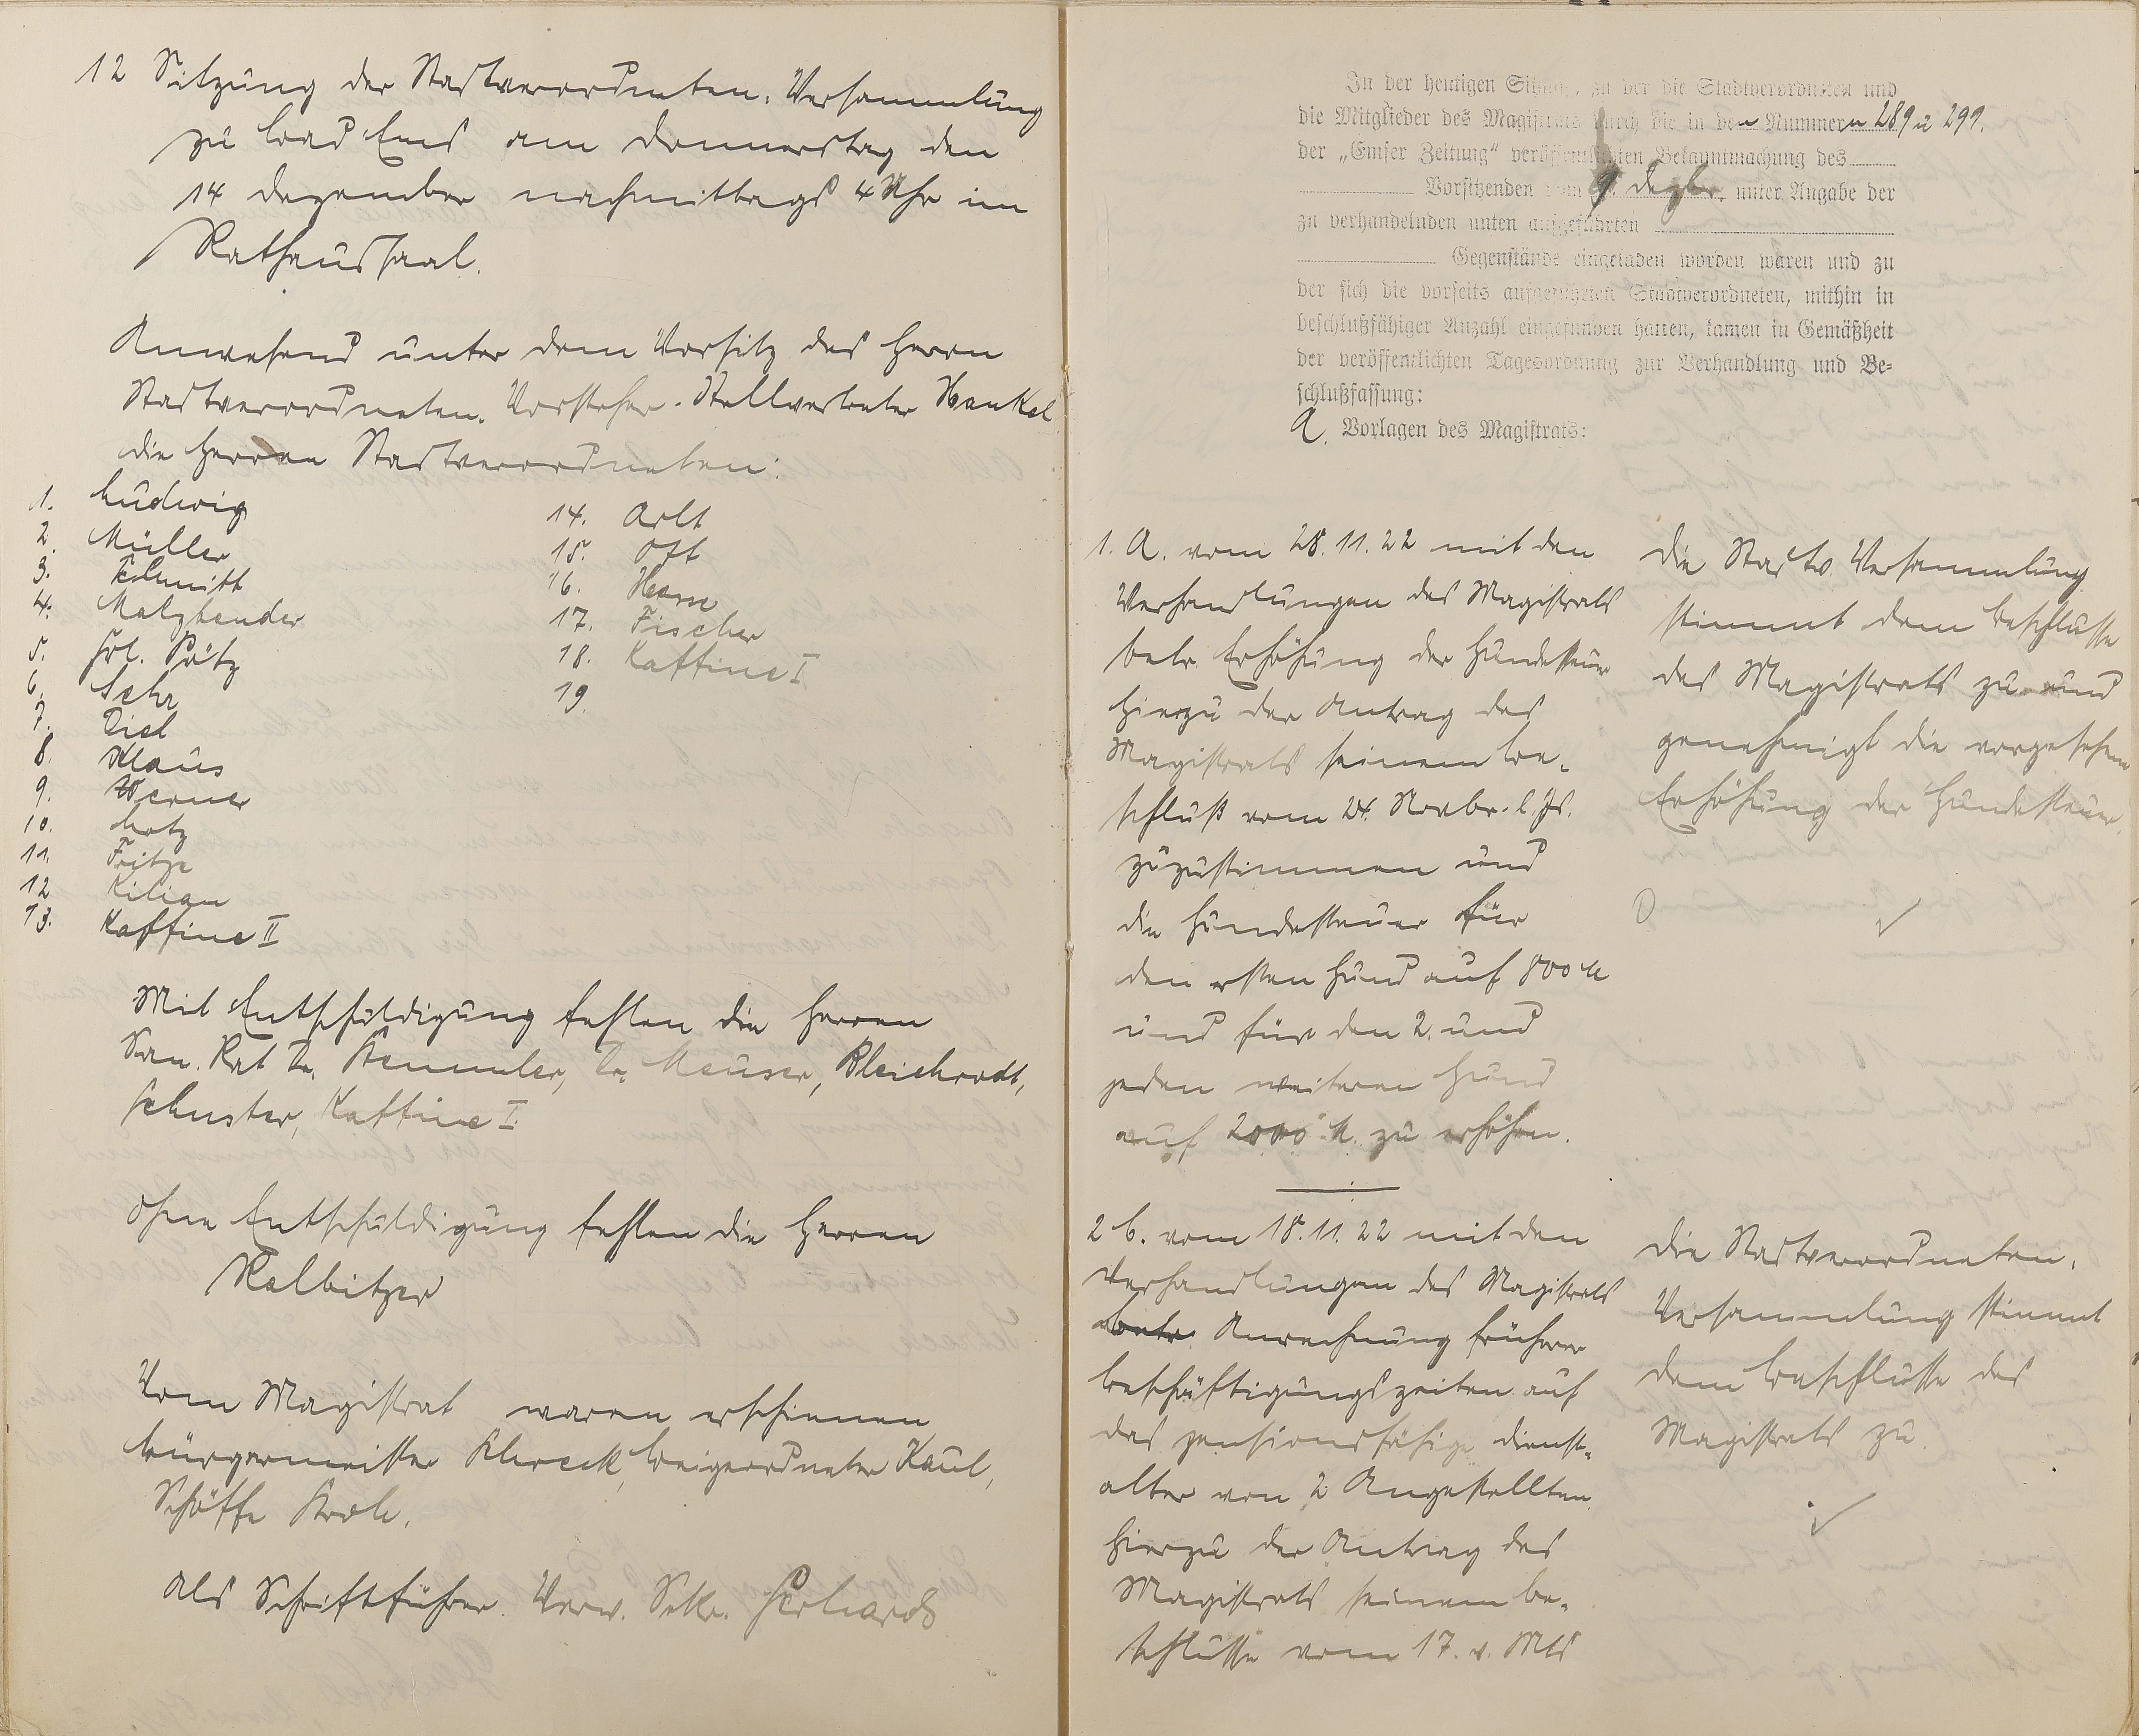 12 Sitzung der Stadtverordneten-Versammlung
zu Bad Ems am Donnerstag den
14 Dezember nachmittags 4 Uhr im
Rathaussaal.
Anwesend unter dem Vorsitz des Herrn
Stadtverordneten-Vorsteher-Stellvertreter Henkel
die Herren Stadtverordneten:
1. Ludwig
2. Müller
3. Schmitt
4. Malzbender
5. Frl. Pötz
6. Sehr
7. Diel
8. Klaus
9. Werner
10. Lotz
11. Fritze
12 Kilian
13. Kaffine II
14. Arlt
15. Ott
16. Hom
17. Fischer
18. Kaffine I
19.
Mit Entschuldigung fehlen die Herren
San. Rat Dr. Stemmler, Dr. Meuser, Bleichrodt,
Schuster, Kaffine I.
Ohne Entschuldigung fehlen die Herren
Kalbitzer
Vom Magistrat waren erschienen
Bürgermeister Schreck, Beigeordneter Kaul,
Schöffe Kroh.
Als Schriftführer. Verw. Sekr. Gerhards
In der heutigen Sitzung, zu der die Stadtverordneten und
die Mitglieder des Magistrats durch die in den Nummern 289 u 291.
der „Emser Zeitung“ veröffentlichten Bekanntmachung des
Vorsitzenden vom 9. Dezbr. unter Angabe der
zu verhandelnden unten aufgeführten
Gegenstände eingeladen worden waren und zu
der sich die vorseits aufgeführten Stadtverordneten, mithin in
beschlußfähiger Anzahl eingefunden hatten, kamen in Gemäßheit
der veröffentlichten Tagesordnung zur Verhandlung und Be-
schlußfassung:
A. Vorlagen des Magistrats:
1. A. vom 28. 11. 22 mit den
Verhandlungen des Magistrats
betr. Erhöhung der Hundesteuer
hierzu der Antrag des
Magistrats seinem Be-
schluß vom 24. Novbr. l. Js.
zuzustimmen und
die Hundesteuer für
den ersten Hund auf 800 M
und für den 2. und
jeden weiteren Hund
auf 2000 M. zu erhöhen.
Die Stadtv. Versammlung
stimmt dem Beschlusse
des Magistrats zu und
genehmigt die vorgesehene
Erhöhung der Hundesteuer.
2 b. vom 18. 11. 22 mit den
Verhandlungen des Magistrats
betr. Anrechnung früherer
Beschäftigungszeiten auf
das pensionsfähige Dienst-
alter von 2 Angestellten.
Hierzu der Antrag des
Magistrats seinem Be-
schlusse vom 17. v. Mts
Die Stadtverordneten-
Versammlung stimmt
dem Beschlusse des
Magistrats zu.